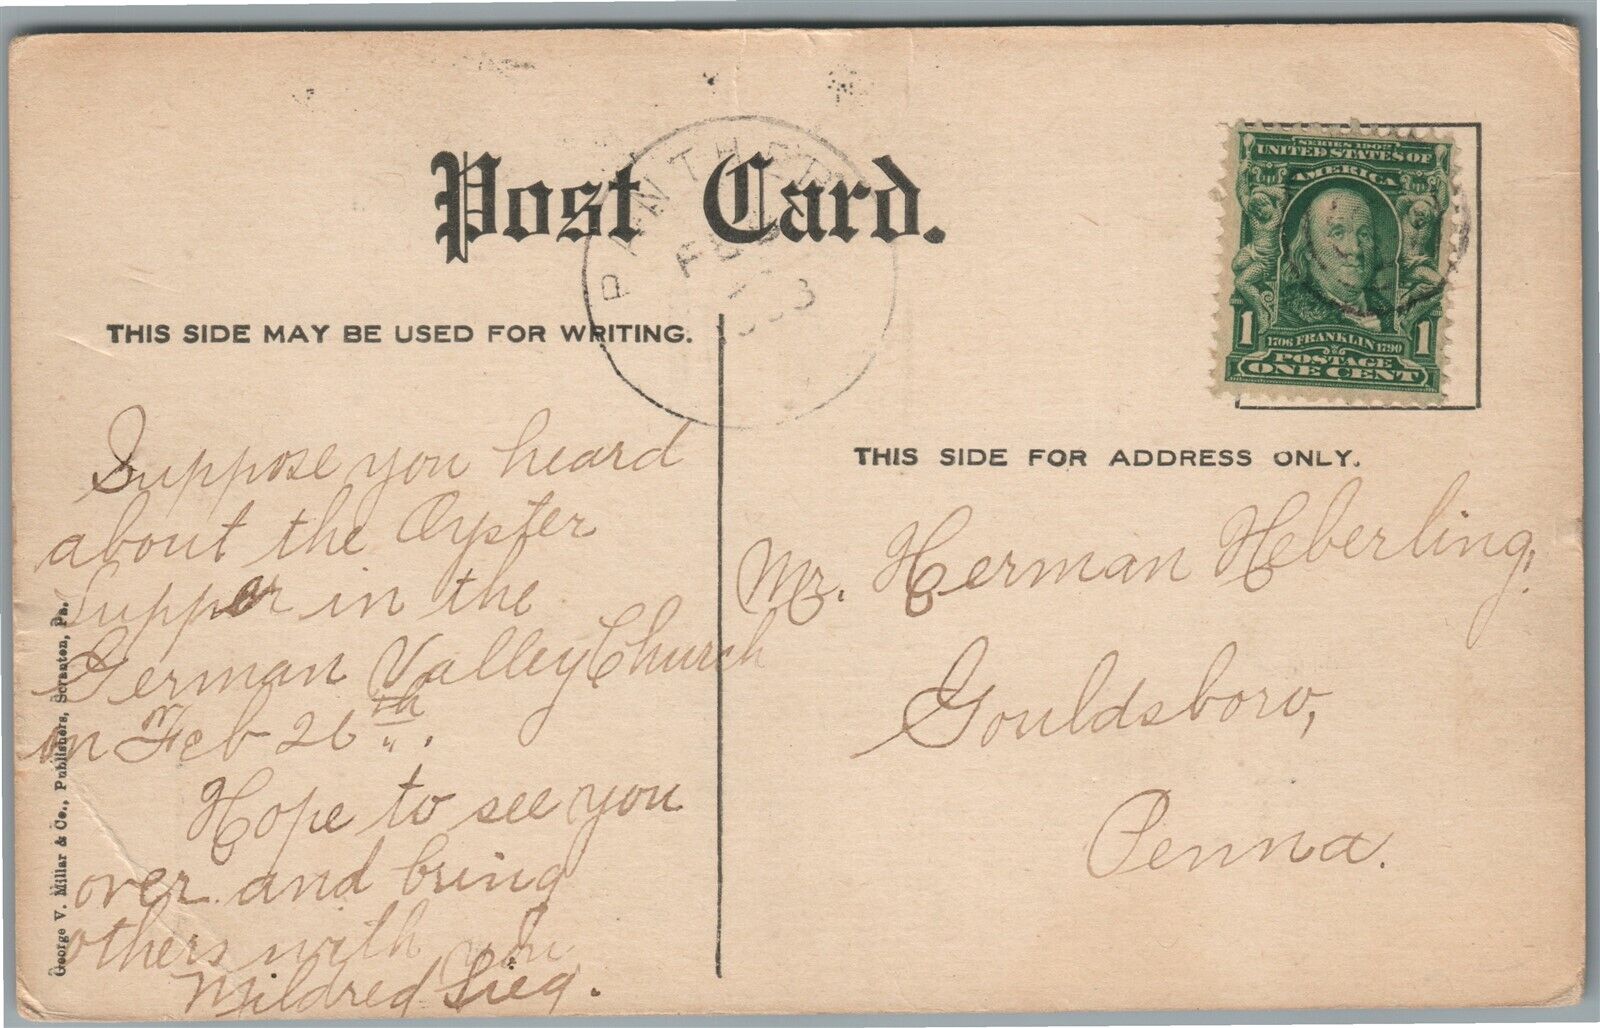 Post Card.
PANTHER
FEB
THIS SIDE MAY BE USED FOR WRITING.
SERIES 1902
UNITED STATES OF
AMERICA
1 1
1706 FRANKLIN 1790
POSTAGE
ONE CENT
Suppose you heard
about the Oyster
Supper in the
German Valley Church
on Feb 26th.
Hope to see you
over and bring
others with you
Mildred Sieg.
THIS SIDE FOR ADDRESS ONLY.
Mr. Herman Heberling,
Gouldsboro,
Penna.
George V. Millar & Co., Publishers, Scranton, Pa.